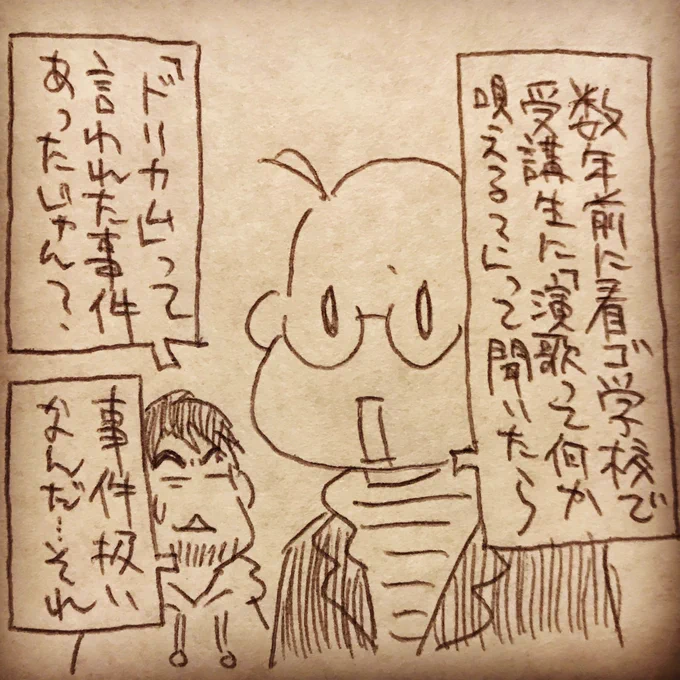 数年前に看ゴ学校で
受講生に「演歌って何か
唄える？」って聞いたら
「ドリカム」って
言われた事件
あったじゃん？
事件扱い
なんだ…それ